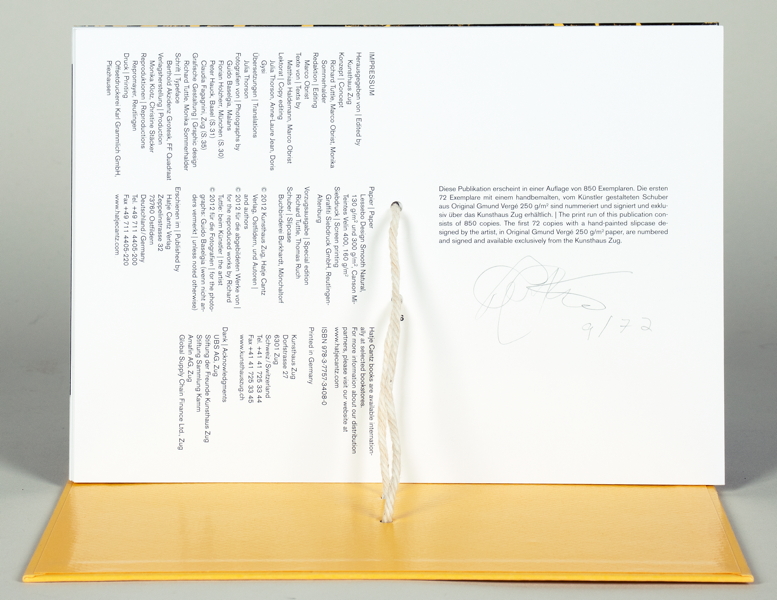 IMPRESSUM
Herausgegeben von | Edited by
Kunsthaus Zug
Konzept | Concept
Richard Tuttle, Marco Obrist, Monika
Sommerhalder
Redaktion | Editing
Marco Obrist
Texte von | Texts by
Matthias Haldemann, Marco Obrist
Lektorat | Copy editing
Julia Thorson, Anne-Laure Jean, Doris
Gysi
Übersetzungen | Translations
Julia Thorson
Fotografien von | Photographs by
Guido Baselgia, Malans
Florian Holzherr, München (S. 30)
Peter Hauck, Basel (S. 31)
Claudia Fagagnini, Zug (S. 35)
Grafische Gestaltung | Graphic design
Richard Tuttle, Monika Sommerhalder
Schrift | Typeface
Berthold Akzidenz Grotesk, FF Quadraat
Verlagsherstellung | Production
Monika Klotz, Christine Stäcker
Reproduktionen | Reproductions
Repromayer, Reutlingen
Druck | Printing
Offsetdruckerei Karl Grammlich GmbH,
Pliezhausen
Papier | Paper
Lessebo Design Smooth Natural,
130 g/m² und 300 g/m², Canson Mi-
Teintes Vellin 400, 160 g/m²
Siebdruck | Screen printing
Graffiti Siebdruck GmbH, Reutlingen-
Altenburg
Vorzugsausgabe | Special edition
Richard Tuttle, Thomas Ruch
Schuber | Slipcase
Buchbinderei Burkhardt, Mönchaltorf
© 2012 Kunsthaus Zug, Hatje Cantz
Verlag, Ostfildern, und Autoren |
and authors
© 2012 für die abgebildeten Werke von |
for the reproduced works by Richard
Tuttle: beim Künstler | the artist
© 2012 für die Fotografien | for the photo-
graphs: Guido Baselgia (wenn nicht an-
ders vermerkt | unless noted otherwise)
Erschienen im | Published by
Hatje Cantz Verlag
Zeppelinstrasse 32
73760 Ostfildern
Deutschland | Germany
Tel. +49 711 4405-200
Fax +49 711 4405-220
www.hatjecantz.com
Hatje Cantz books are available internation-
ally at selected bookstores.
For more information about our distribution
partners, please visit our website at
www.hatjecantz.com.
ISBN 978-3-7757-3408-0
Printed in Germany
Kunsthaus Zug
Dorfstrasse 27
6301 Zug
Schweiz | Switzerland
Tel. +41 41 725 33 44
Fax +41 41 725 33 45
www.kunsthauszug.ch
Dank | Acknowledgments
UBS AG, Zug
Stiftung der Freunde Kunsthaus Zug
Stiftung Sammlung Kamm
Amafin AG, Zug
Global Supply Chain Finance Ltd., Zug
Diese Publikation erscheint in einer Auflage von 850 Exemplaren. Die ersten
72 Exemplare mit einem handbemalten, vom Künstler gestalteten Schuber
aus Original Gmund Vergé 250 g/m² sind nummeriert und signiert und exklu-
siv über das Kunsthaus Zug erhältlich. | The print run of this publication con-
sists of 850 copies. The first 72 copies with a hand-painted slipcase de-
signed by the artist, in Original Gmund Vergé 250 g/m² paper, are numbered
and signed and available exclusively from the Kunsthaus Zug.
9/72